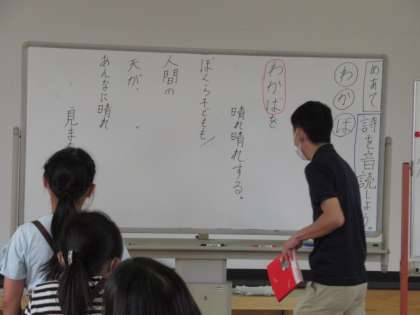 めあて
詩を音読しよう。
わかば
わかばを
晴れ晴れする。
ぼくら子どもも/
人間の
天が、
あんなに晴れ
見ま